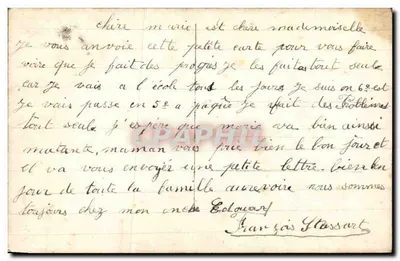 chère marie est chère mademoiselle
Je vous anvoie cette petite carte pour vous faire
voire que je fait des progrès je les fait tout seule
car je vais a l'école tous les jours je suis en 6e et
je vais passe en 5e a paque je fait des Problèmes
tout seule j'espère que marie va bien ainsi
mutante, maman vous prie bien le bon jour et
il va vous envoyér une petite lettre. bien bon
jour de toute la famille aurevoire nous sommes
toujours chez mon oncle Edouar
François Stassart